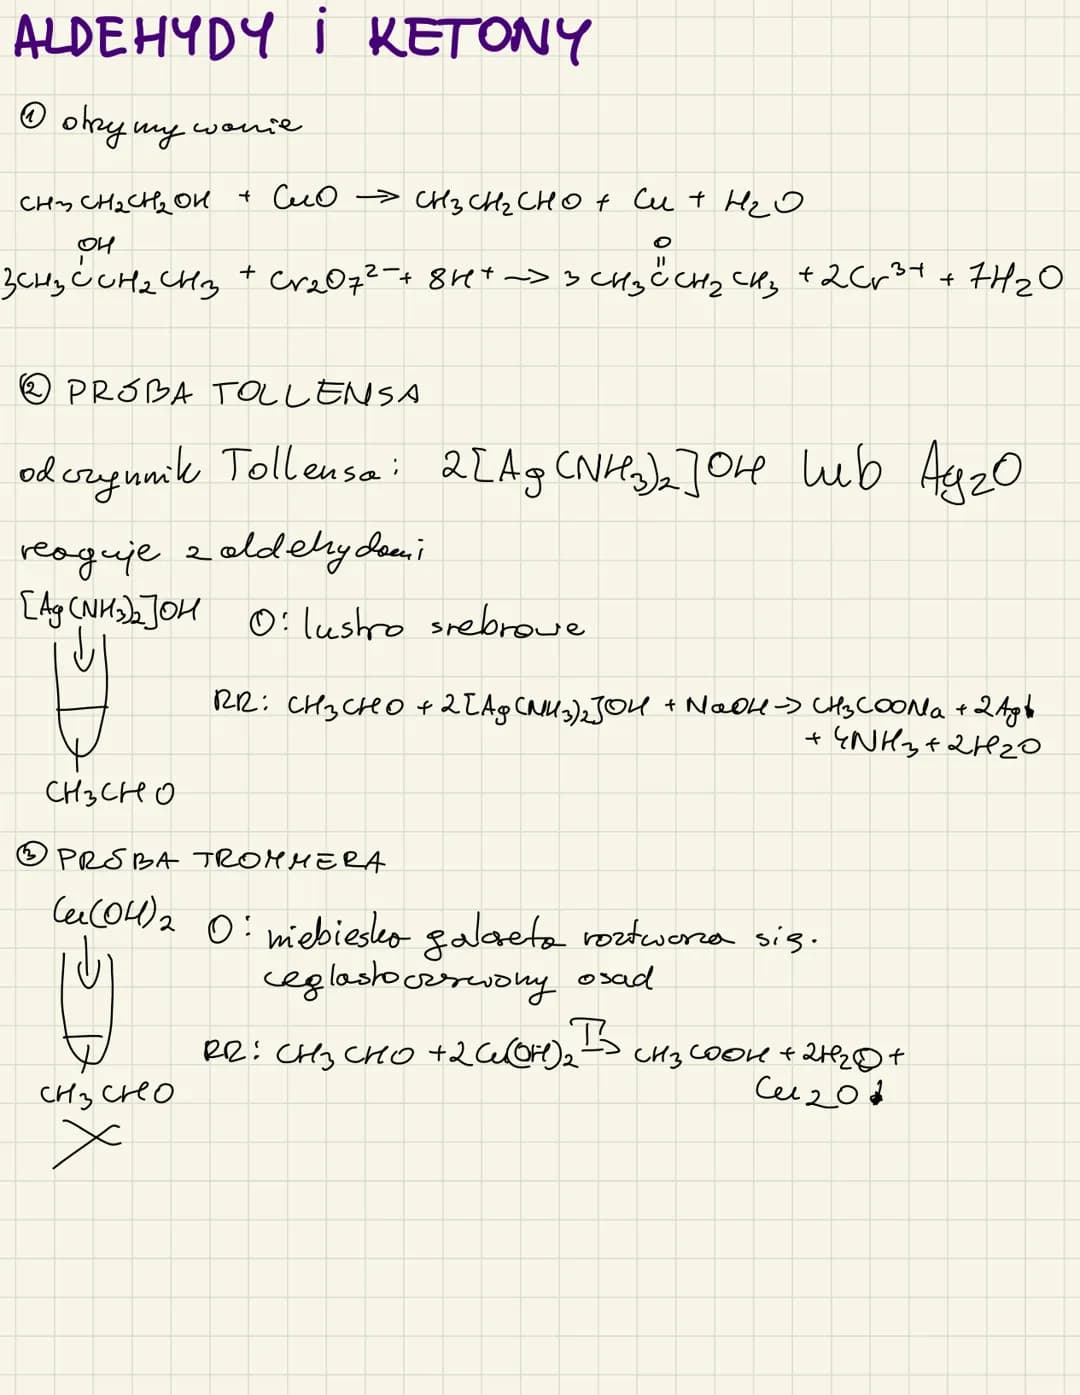 ALDEHYDY i KETONY
① otrzymywanie
CH3CH2CH2OH + CuO → CH3CH2CHO + Cu + H2O
OH O
3CH3CCH2CH3 + Cr2O7²⁻ + 8H⁺ → 3CH3CCH2CH3 + 2Cr³⁺ + 7H2O
② PRÓBA TOLLENSA
odczynnik Tollensa: 2[Ag(NH3)2]OH lub Ag2O
reaguje z aldehydami
[Ag(NH3)2]OH
O: lustro srebrowe
RR: CH3CHO + 2[Ag(NH3)2]OH + NaOH → CH3COONa + 2Ag↓
+ 4NH3 + 2H2O
CH3CHO
③ PRÓBA TROMMERA
Cu(OH)2
O: niebieska galareta roztwarza się.
ceglastoczerwony osad
RR: CH3CHO + 2Cu(OH)2 T→ CH3COOH + 2H2O +
Cu2O↓
CH3CHO